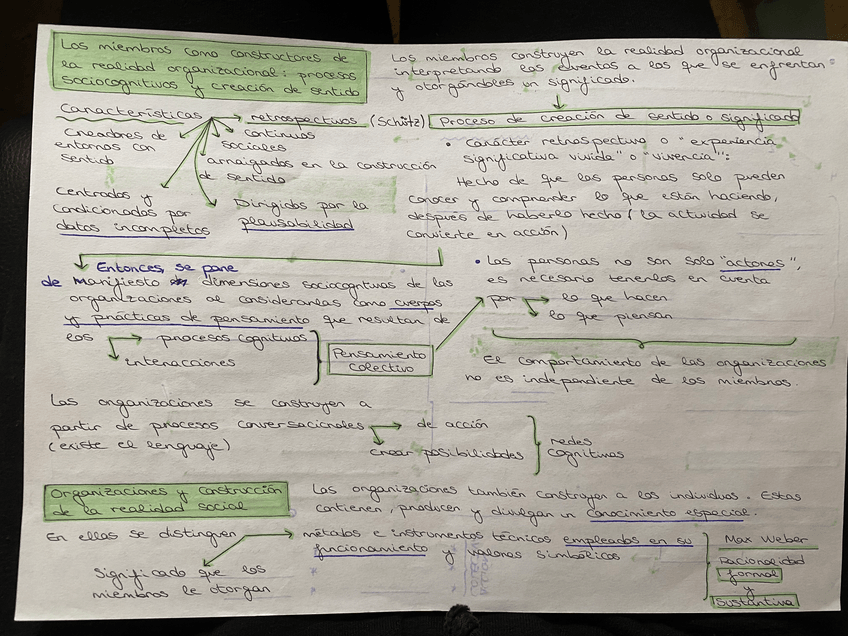 Los miembros como constructores de
la realidad organizacional: procesos
sociocognitivos y creación de sentido
Los miembros construyen la realidad organizacional
interpretando los eventos a los que se enfrentan
y otorgándoles un significado.
Características
retrospectivos (Schütz)
continuos
sociales
arraigados en la construcción
de sentido
Creadores de
entornos con
sentido
Centrados y
condicionados por
datos incompletos
Dirigidos por la
plausabilidad
Proceso de creación de sentido o significado
• Carácter retrospectivo o "experiencia
significativa vivida" o "vivencia":
Hecho de que las personas solo pueden
conocer y comprender lo que están haciendo,
después de haberlo hecho (la actividad se
convierte en acción)
Entonces, se pone
de manifiesto dimensiones sociocogntivas de las
organizaciones al considerarlas como cuerpos
y prácticas de pensamiento que resultan de
los procesos cognitivos
interacciones
Pensamiento
colectivo
• Las personas no son solo "actores",
es necesario tenerlos en cuenta
por lo que hacen
lo que piensan
El comportamiento de las organizaciones
no es independiente de los miembros.
Las organizaciones se construyen a
partir de procesos conversacionales de acción
(existe el lenguaje)
crear posibilidades
redes
cognitivas
Organizaciones y construcción
de la realidad social
Las organizaciones también construyen a los individuos. Estas
contienen, producen y divulgan un conocimiento espacial.
En ellas se distinguen
métodos e instrumentos técnicos empleados en su
funcionamiento y valores simbólicos
Significado que los
miembros le otorgan
Max Weber
Racionalidad
formal
y
sustantiva